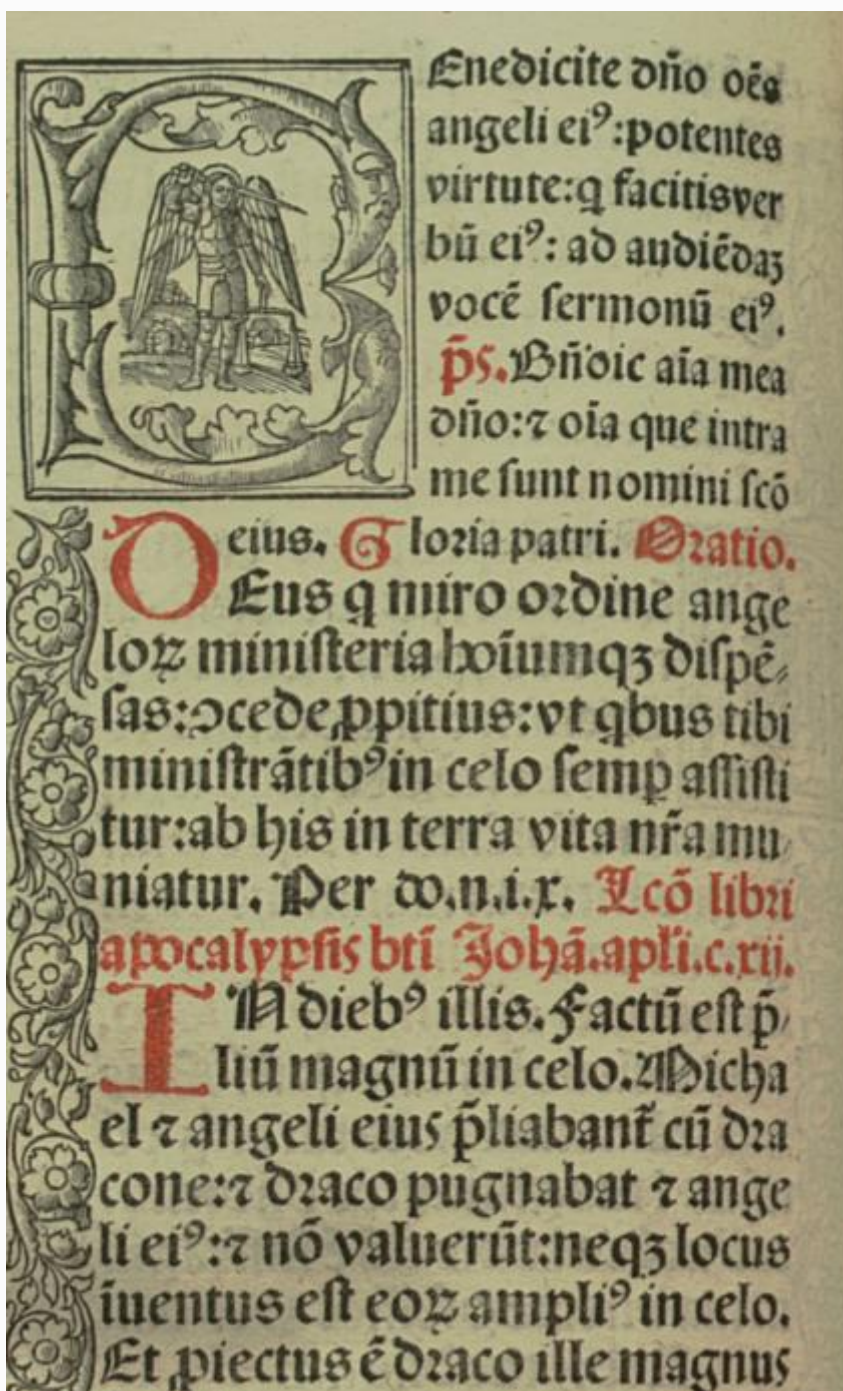 Enedicite dño oẽs
angeli eiꝰ:potentes
virtute:q facitisver
bũ eiꝰ: ad audiẽdaꝫ
vocẽ ſermonũ eiꝰ.
p̃s. Bñdic aĩa mea
dño:⁊ oĩa que intra
me ſunt nomini ſcõ
eius. Gloꝛia patri. Oꝛatio.
DEus q miro oꝛdine ange
loꝝ miniſteria hoĩumqꝫ diſpẽ⸗
ſas:ↄcede ꝓpitius:vt qbus tibi
miniſtrãtibꝰ in celo ſemꝑ aſſiſti
tur:ab his in terra vita nr̃a mu⸗
niatur. Per do.n.i.x. Lcõ libꝛi
apocalypſis bti̅ Johã.apl̃i.c.xii.
IN diebꝰ illis. Factũ eſt p̃⸗
liũ magnũ in celo. Micha
el ⁊ angeli eius p̃liabant̃ cũ dꝛa
cone:⁊ dꝛaco pugnabat ⁊ ange
li eiꝰ:⁊ nõ valuerũt:neqꝫ locus
ĩuentus eſt eoꝝ ampliꝰ in celo.
Et ꝓiectus ẽ dꝛaco ille magnus